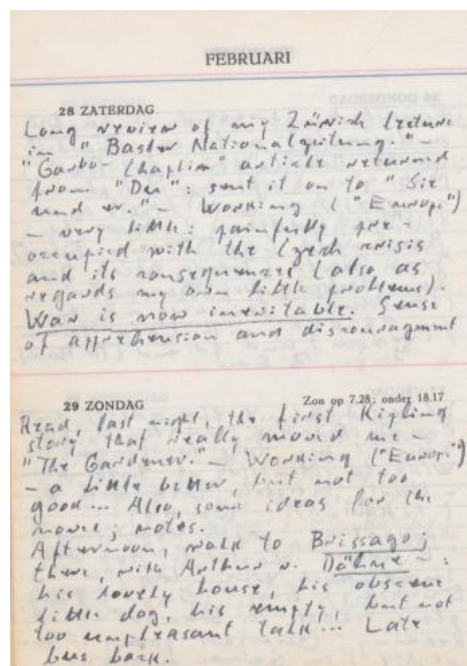 FEBRUARI
28 ZATERDAG
Long review of my Zürich lecture
in "Basler Nationalzeitung." –
"Garbo-Chaplin" article returned
from "Du": sent it on to "Sie
und er." – Working ("Europe")
– very little: painfully pre-
occupied with the Czech crisis
and its consequences (also as
regards my own little problems).
War is now inevitable. Sense
of apprehension and discouragment
29 ZONDAG
Zon op 7.28; onder 18.17
Read, last night, the first Kipling
story that really moved me –
"The Gardener." – Working ("Europe")
– a little better, but not too
good... Also, some ideas for the
novel; notes.
Afternoon, walk to Brissago;
there, with Arthur v. Dähne – :
his lovely house, his obscene
little dog, his empty, but not
too unpleasant talk... Late
bus back.